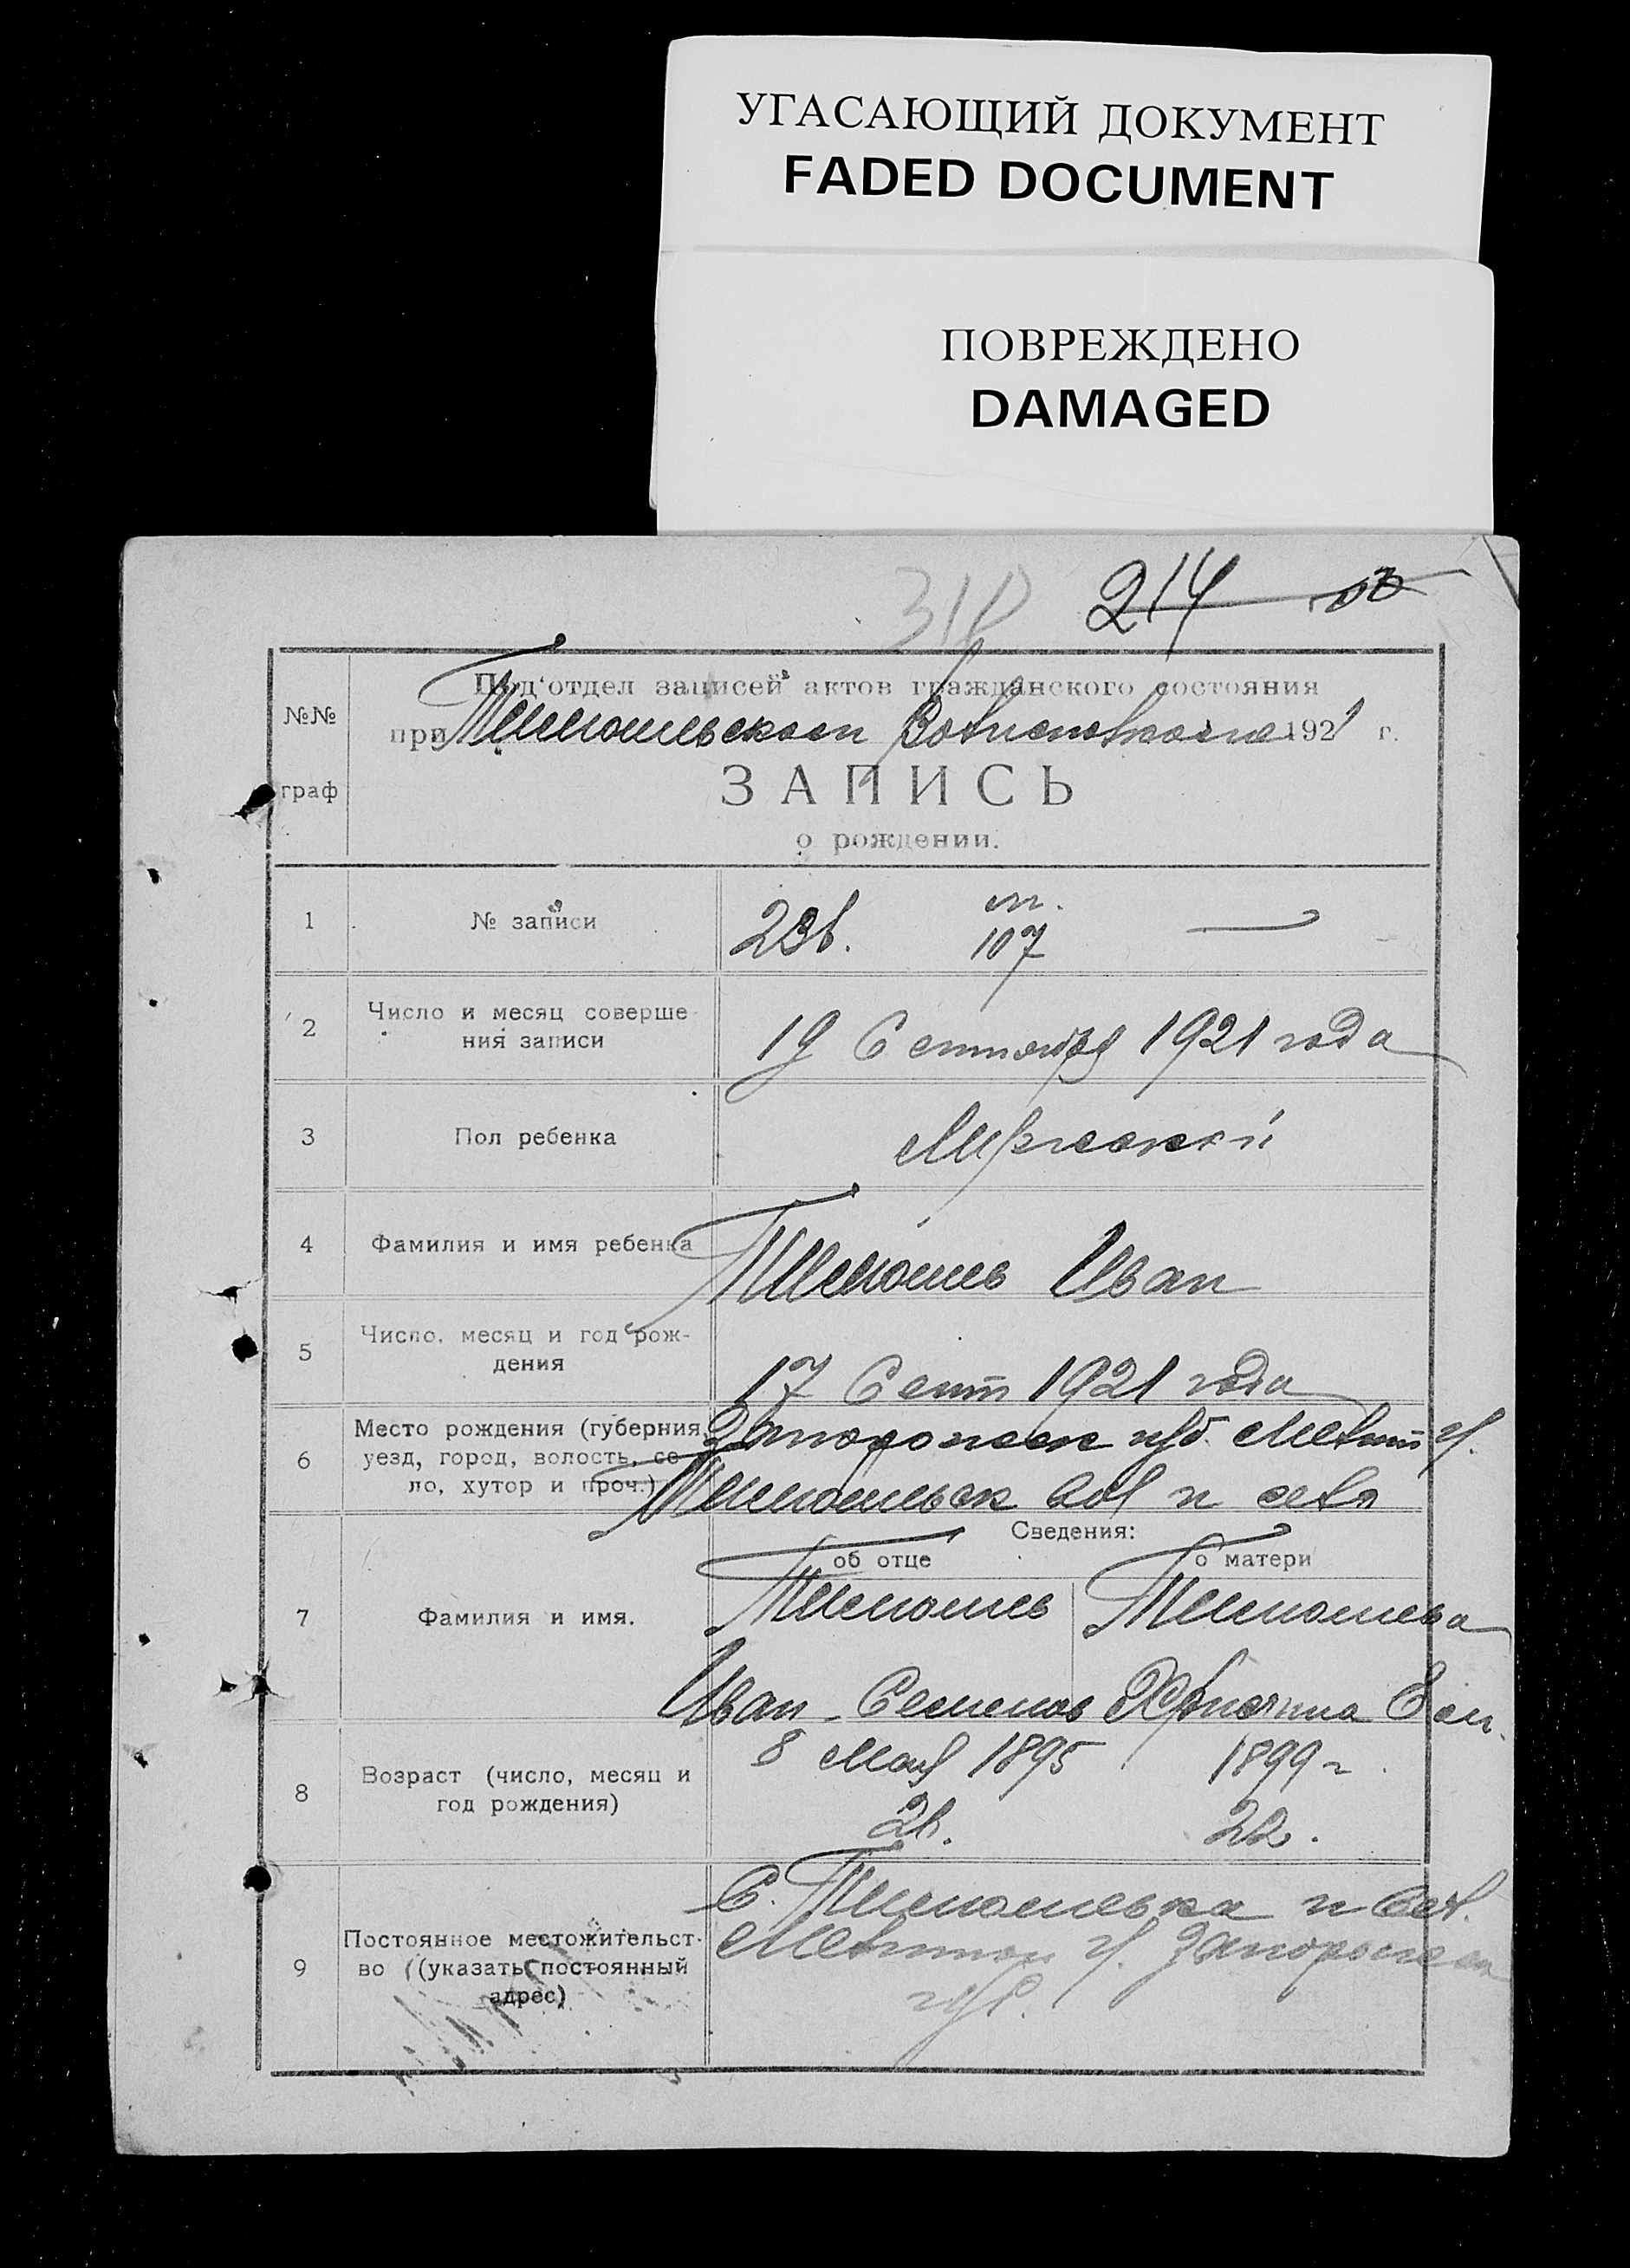 УГАСАЮЩИЙ ДОКУМЕНТ
FADED DOCUMENT
ПОВРЕЖДЕНО
DAMAGED
318 214
№№ граф
Под'отдел записей актов гражданского состояния
при Тимошевском 1921 г.
ЗАПИСЬ
о рождении.
1 № записи 107
2 Число и месяц соверше-
ния записи 19 Сентября 1921 года
3 Пол ребенка Мужской
4 Фамилия и имя ребенка Тимошев Иван
5 Число, месяц и год рож-
дения 17 Сент 1921 года
6 Место рождения (губерния,
уезд, город, волость, се-
ло, хутор и проч.)
Запорожск губ. Мелит у.
Тимошевск вол и села
Сведения:
об отце о матери
7 Фамилия и имя.
Тимошев Тимошева
Иван Семенов Христина
8 Возраст (число, месяц и
год рождения)
8 Мая 1895 1899 г
26. 22.
9 Постоянное местожительст-
во (указать постоянный
адрес)
С. Тимошевка
Мелитоп у. Запорожск
губ.